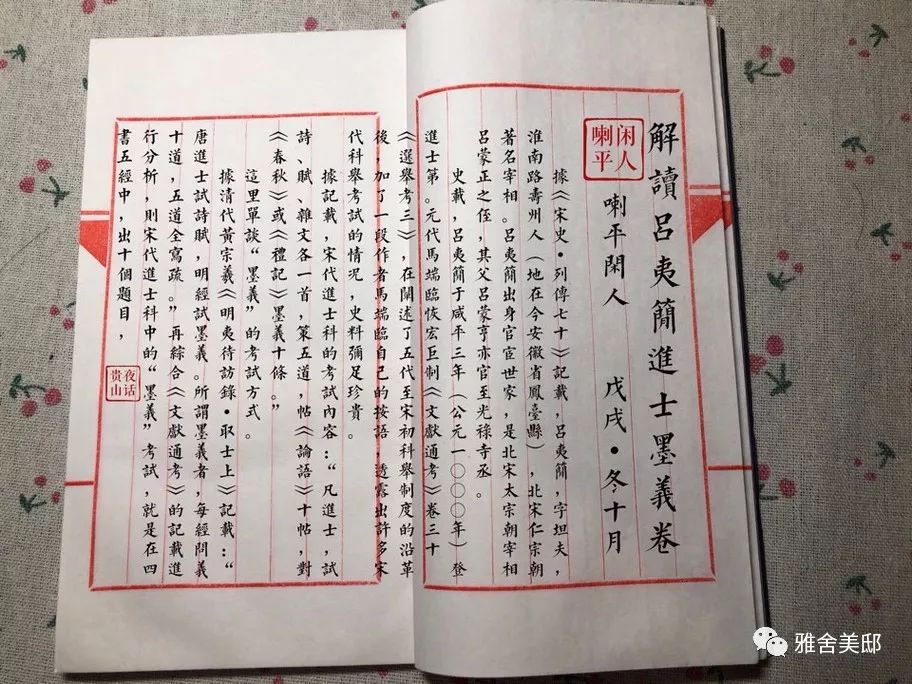 解讀呂夷簡進士墨義卷
闲人
喇平
喇平閑人 戊戌·冬十月
據《宋史·列傳七十》記載，呂夷簡，字坦夫，
淮南路壽州人（地在今安徽省鳳臺縣），北宋仁宗朝
著名宰相。呂夷簡出身官宦世家，是北宋太宗朝宰相
呂蒙正之侄，其父呂蒙亨亦官至光祿寺丞。
史載，呂夷簡于咸平三年（公元一〇〇〇年）登
進士第。元代馬端臨恢宏巨制《文獻通考》卷三十
《選舉考三》，在闡述了五代至宋初科舉制度的沿革
後，加了一段作者馬端臨自己的按語，透露出許多宋
代科舉考試的情況，史料彌足珍貴。
據記載，宋代進士科的考試內容：“凡進士，試
詩、賦、雜文各一首，策五道，帖《論語》十帖，對
《春秋》或《禮記》墨義十條。”
這里單談“墨義”的考試方式。
據清代黃宗羲《明夷待訪錄·取士上》記載：“
唐進士試詩賦，明經試墨義。所謂墨義者，每經問義
十道，五道全寫疏。”再綜合《文獻通考》的記載進
行分析，則宋代進士科中的“墨義”考試，就是在四
書五經中，出十個題目，
夜话
贵山
雅舍美邸